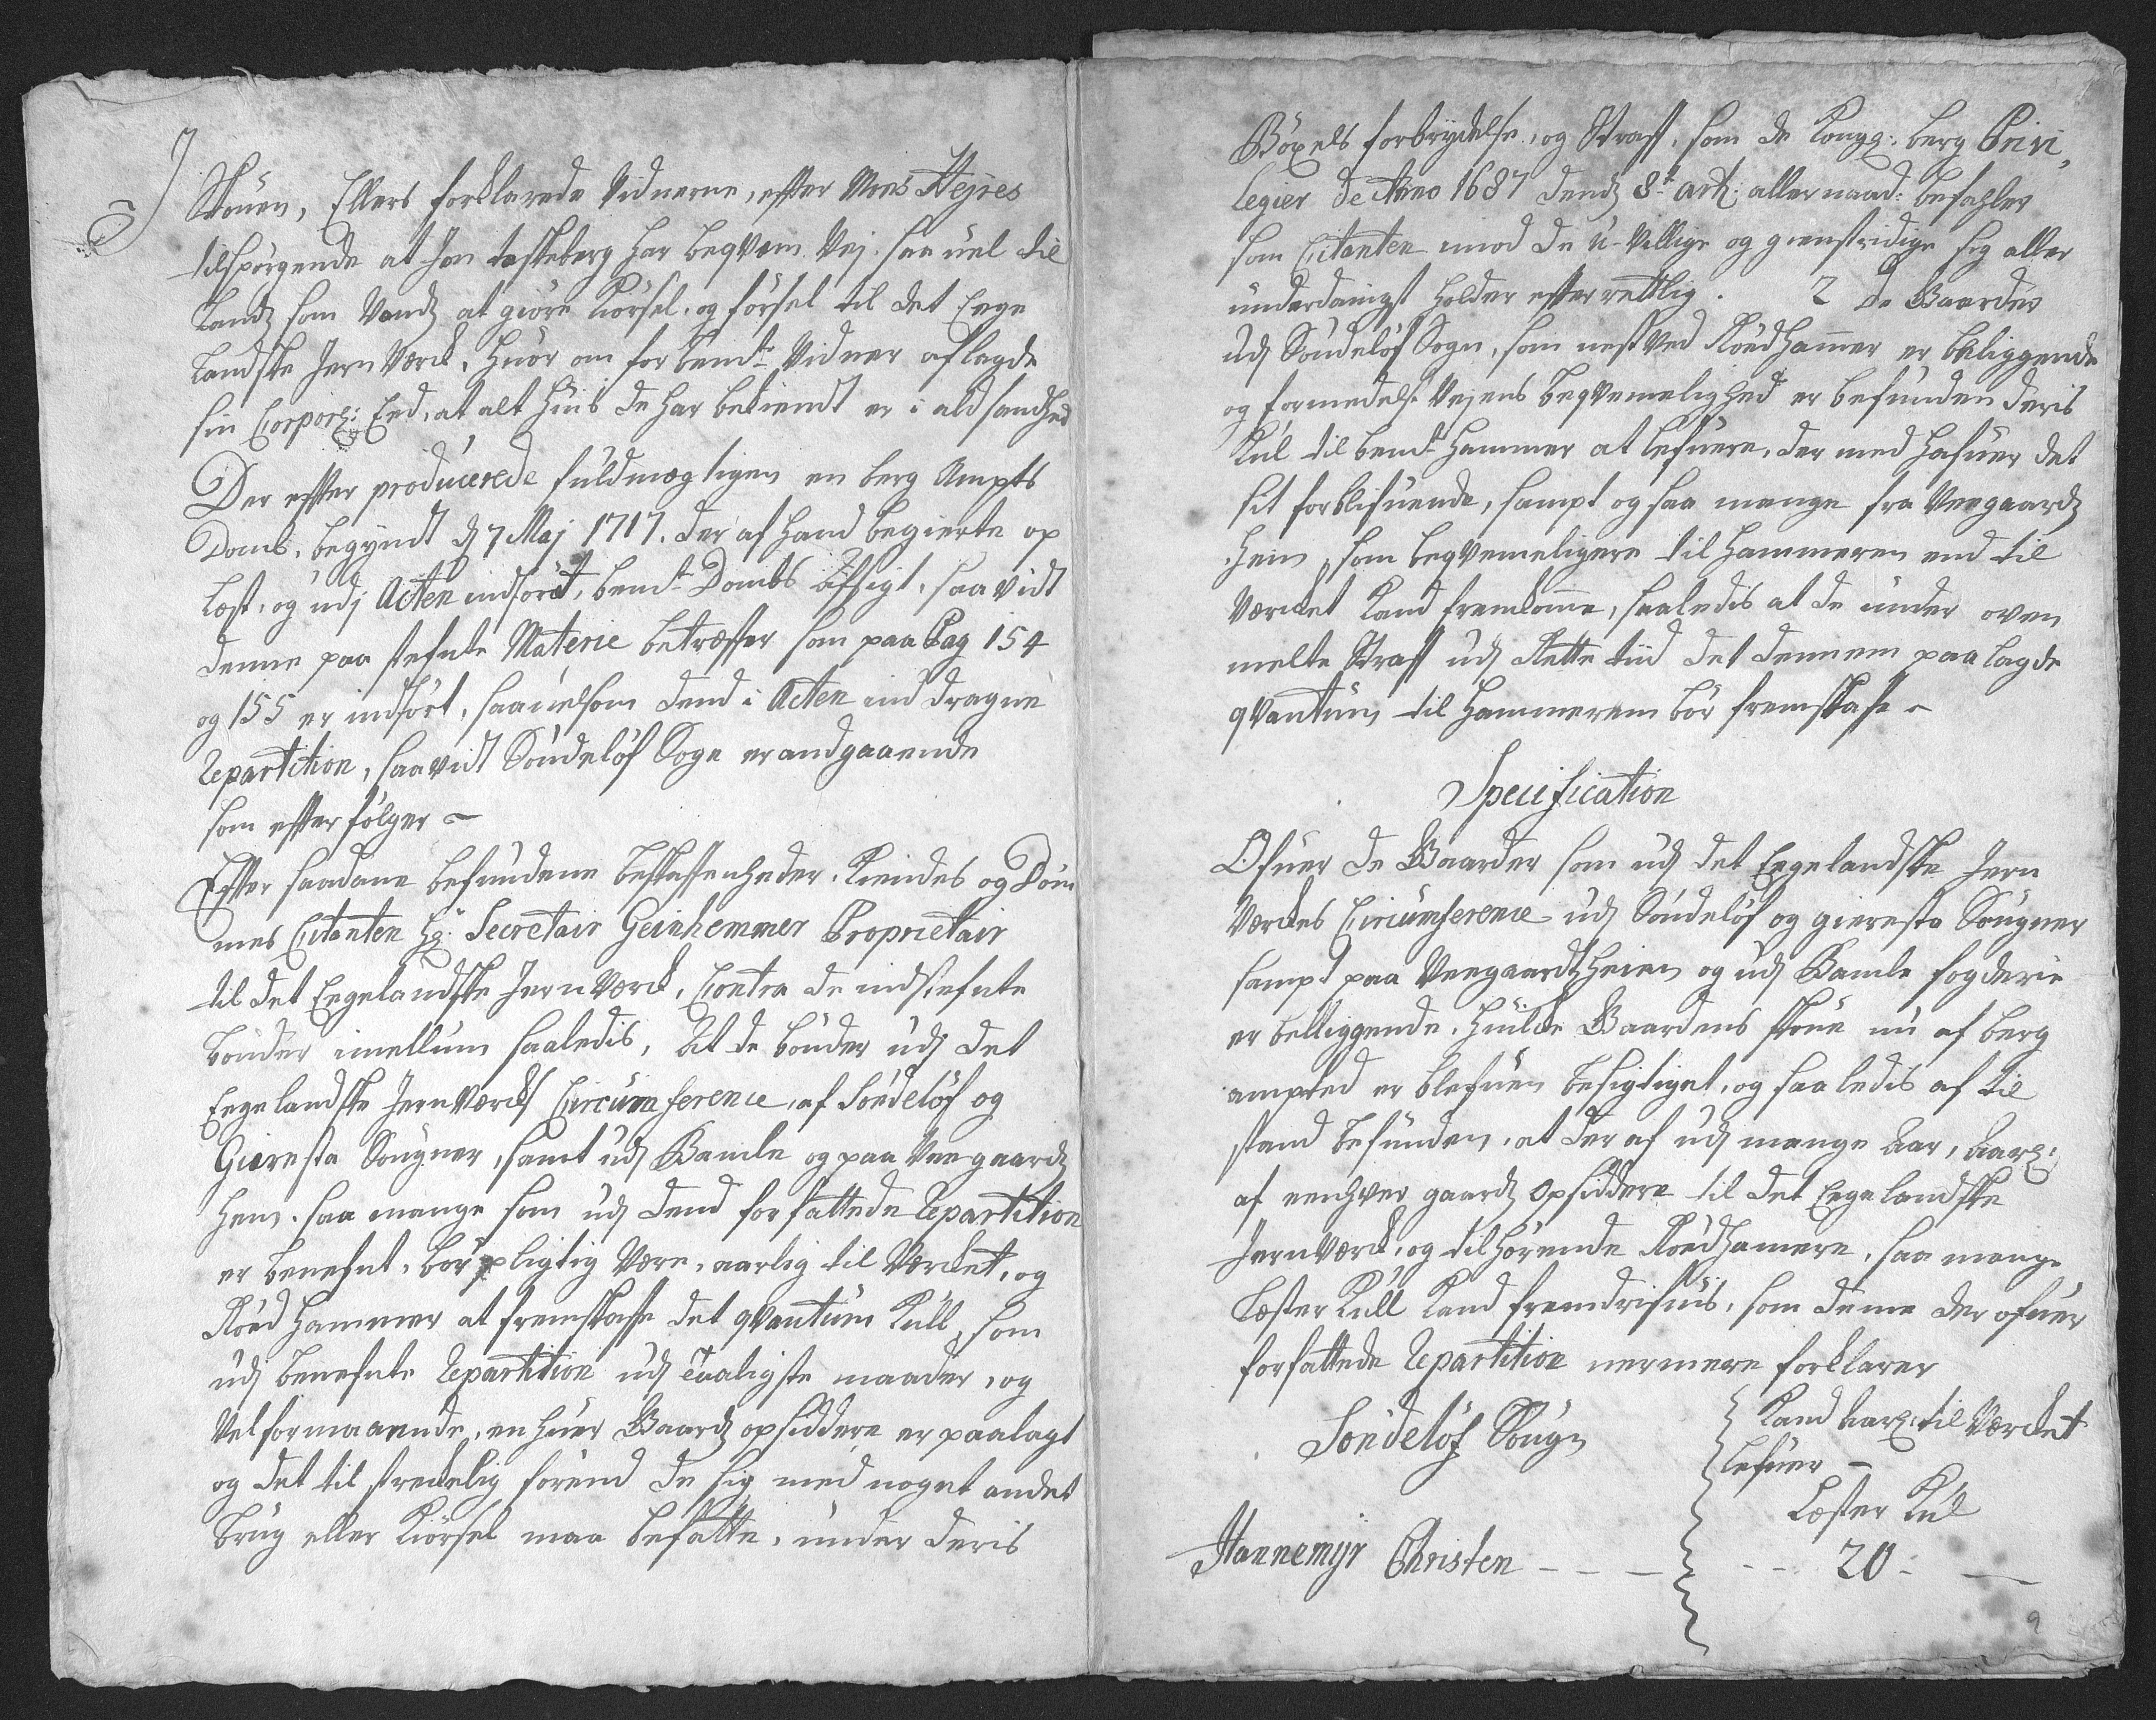 Skouen, Ellers forklarede Vidnerne, effter Mons Hejres
tilspørgende at Jon taskeberg har beqvem Vej saa vel til
Landz som Vandz at giøre Kiørsel, og førsel til det Eege
landske Jern Verck, huor om for bemt: Vidner aflagde
sin Corporl: Eed, at alt huis de har bekiendt er i ald sandhed
Der effter producerede fuldmegtigen en berg Ampts
Domb, begyndt d 7 Maj 1717. der af hand begierte op
læst, og udj Acten indført, bemt: Dombs Afsigt, saa vidt
denne paa stefnte Materie betreffer som paa Pag 154
og 155 er indført, saavelsom dend i Acten ind dragne
Repartition, saavidt Søndeløf Sogn er andgaaende
som effter følger ~
Effter saadane befundene beskaffenheder, Kiendes og Døm
mes Citanten Hr: Secretair Geinhemmer Proprietair
til det Eegelandske Jern Verck, Contra de indstefnte
bønder imellum saaledis, At de bønder udj det
Eegelandske Jern Vercks Circumference, af Søndeløf og
Gierresta Sougner, samt udj Bamle og paa Veegaardz
hem, saa mange som udj dend forfattede Repartition
er benefnt, bør pligtig Være, aarlig til Vercket, og
Roed hammer at fremskaffe det qvantum Kull, som
udj benefnte Repartition udj taaligste maader, og
Vel formaaende, en huer Gaardz opsiddere er paalagt
og det til streckelig førend de sig med noget andet
brug eller Kiørsel maa befatte, under deris
Bøxels forbrydelse, og Straff, som de Kongl: berg Privi,
legier de Anno 1687 dendz 8t: art: aller naad: befahler
som Citanten imod de U-Villige og gienstridige sig aller
underdanigst holder effterrettlig. 2 De Gaarder
udj Søndeløf Sogn, som nest Ved Roedhamer er beliggende
og formedelst Vejens beqvemelighed er befunden deris
Kul til bemt: hammer at lefuere, der med hafuer det
sit forblifuende, sampt og saa mange fra Veegaardz
hem, som beqvemeligere til Hammeren end til
Vercket kand fremkome, saaledis at de under oven
melte Straff udj Rette tiid det dennem paa lagde
qvantum til Hammerem bør fremskaffe ~
Specification
Ofuer de Gaarder som udj det Eegelandske Jern
Verckes Circumference udj Søndeløf og gierresta Sougner
sampt paa Veegaardzheien og udj Bamle fogderie
er beliggende, huilcke Gaardens skoue nu af berg
ampted er blefuen besigtiget, og saaledis af til
stand befunden, at der af udj mange Aar, Aarl:
af eenhver gaardz opsiddere til det Eegelandske
Jern Verck, og tilhørende Roedhamere, saa mange
Læster Kull kand fremdrifuis, som denne der ofuer
forfattede Repartition nermere forklarer
Søndeløf Sougn
Kand Aarl: til Vercket
lefuer –
Læster Kul
Hannemyr Christen – – – – – 20 : —
9